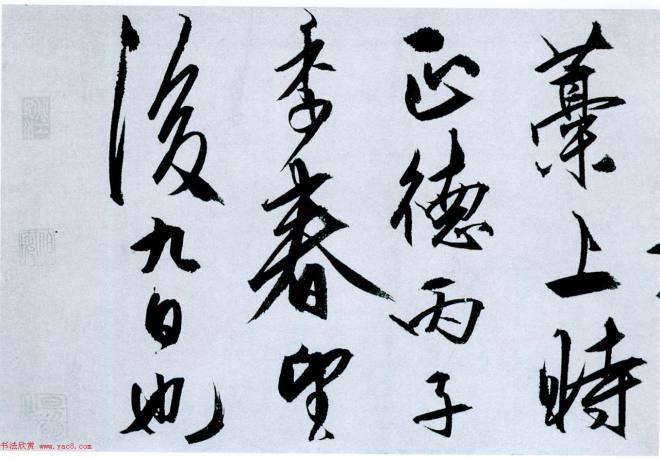 藁上時
正德丙子
季春望
後九日也
书法欣赏 www.yac8.com